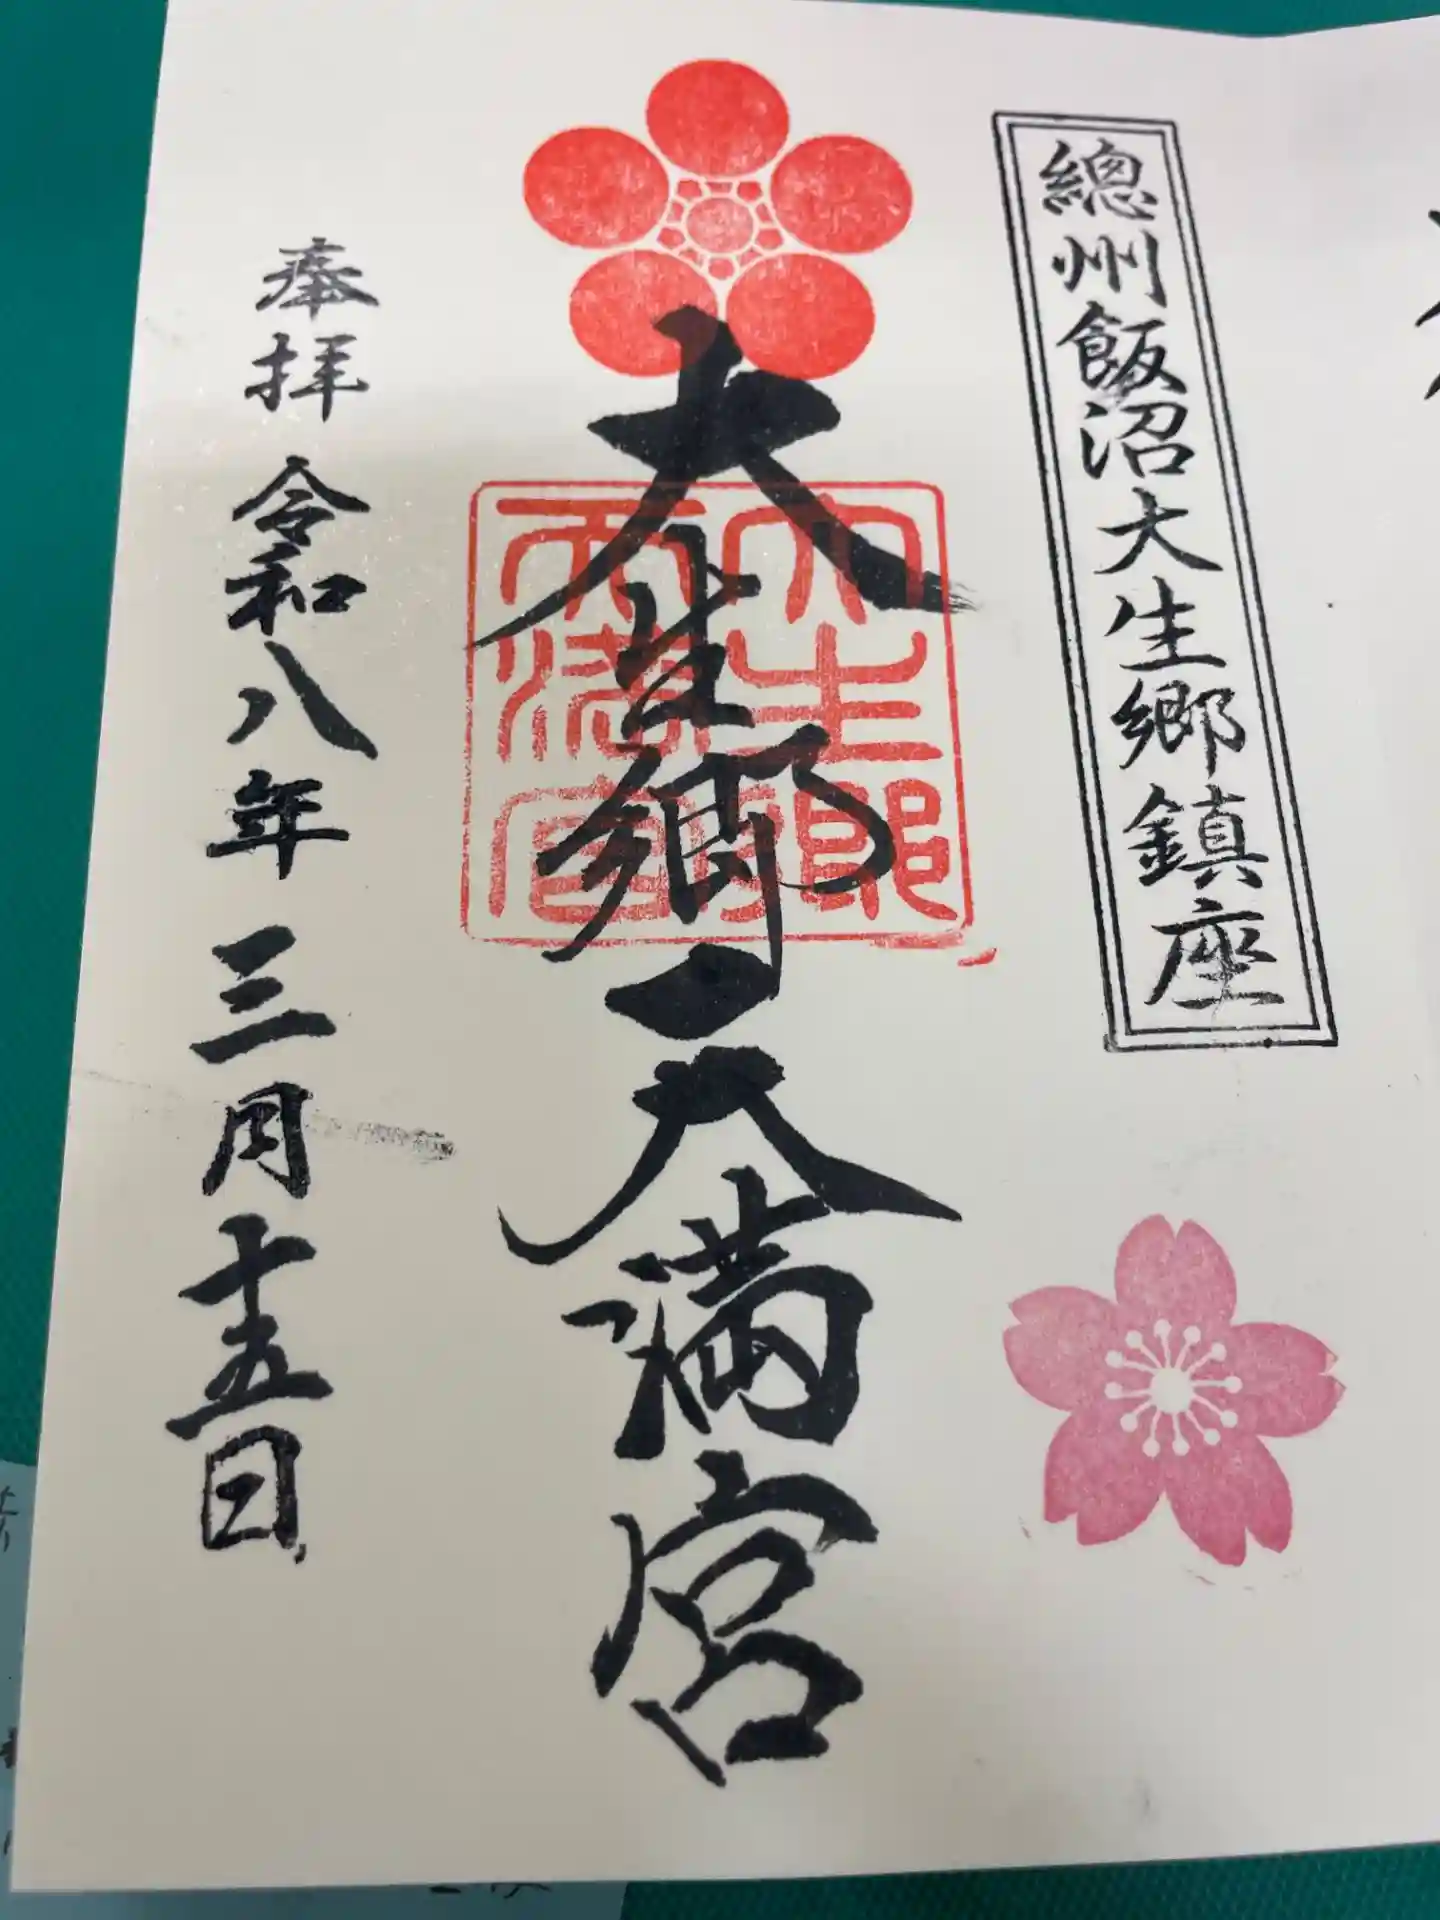 總州飯沼大生郷鎮座
大生郷天満宮
大生郷
天満宮
奉拝 令和八年三月十五日